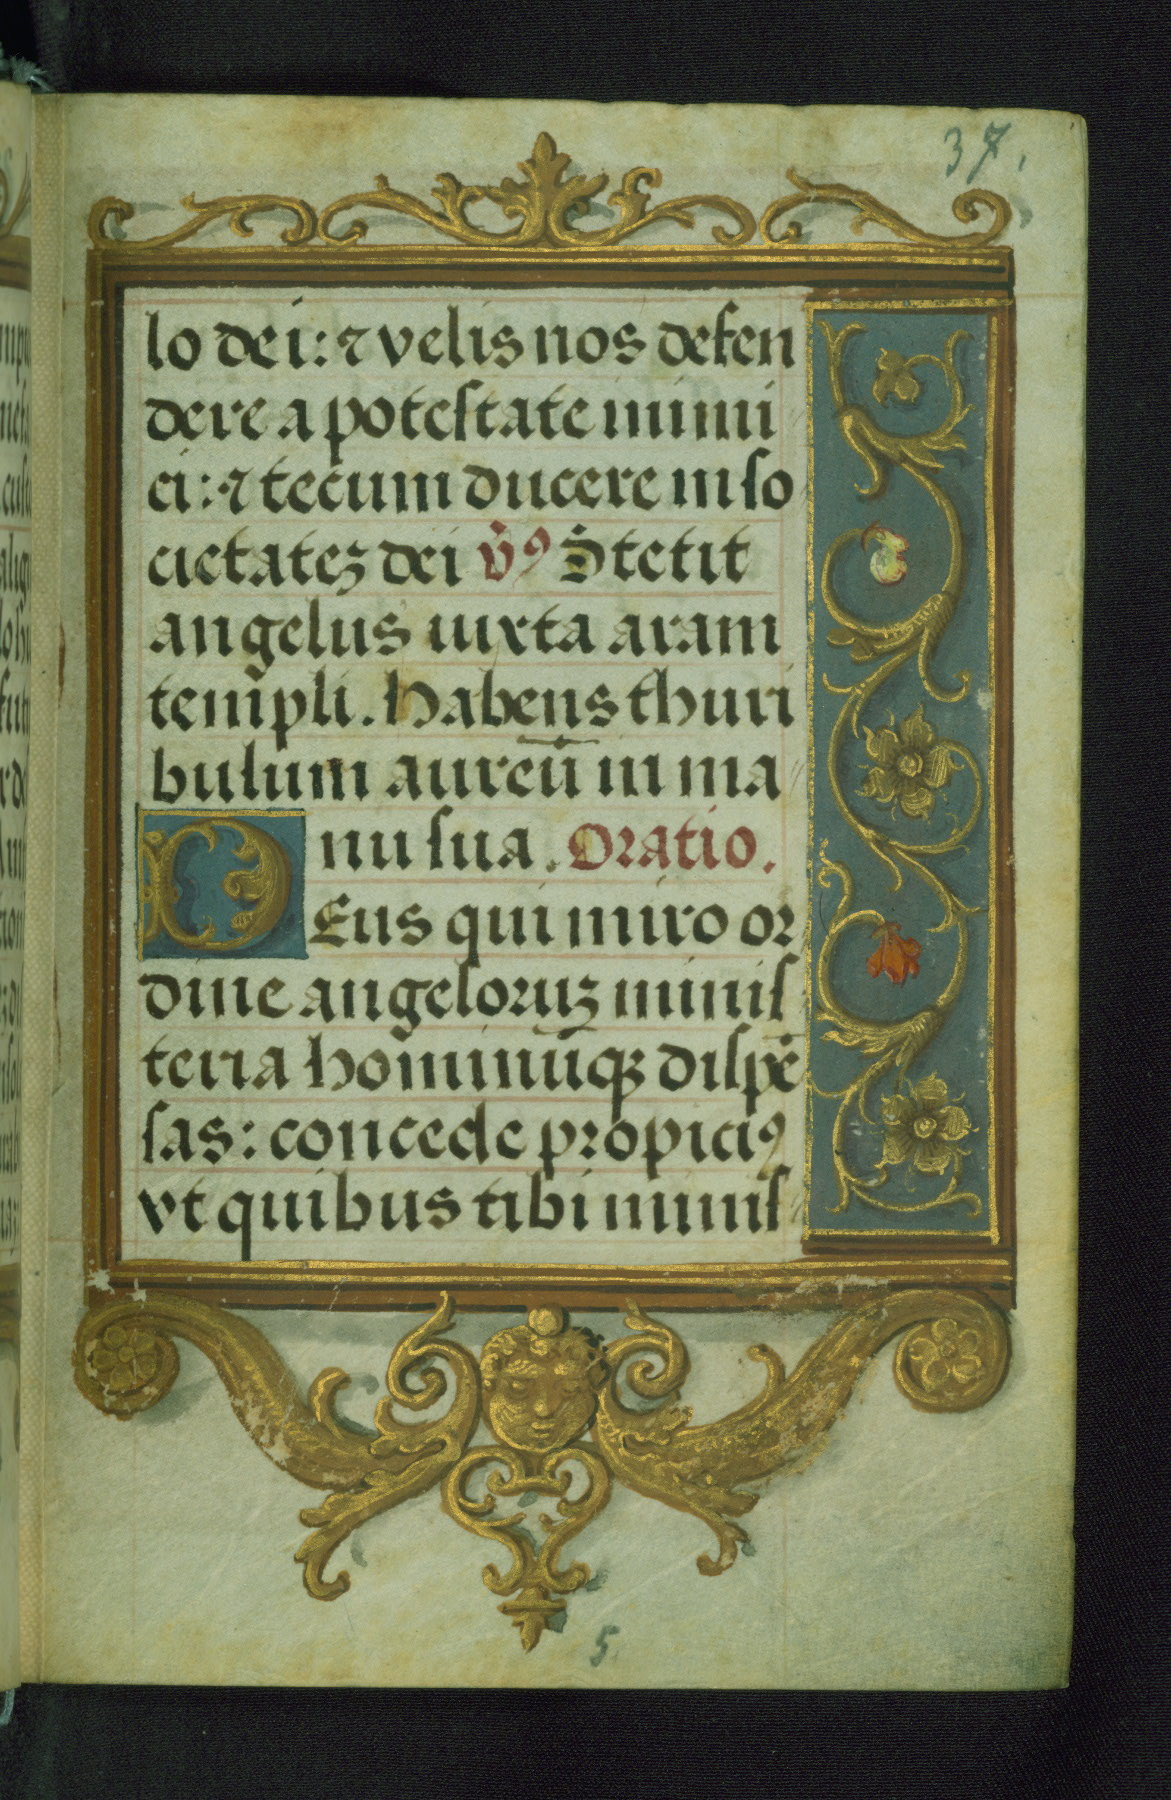 37.
lo dei: ⁊ velis nos defen
dere a potestate inimi
ci: ⁊ tecum ducere in so
cietateꝫ dei v̄ꝰ Stetit
angelus iuxta aram
templi. Habens thuri
bulum aureū in ma
nu sua. Oratio.
DEus qui miro or
dine angeloruꝫ minis
teria hominūqꝫ dispē
sas: concede propiciꝰ
vt quibus tibi minis
5